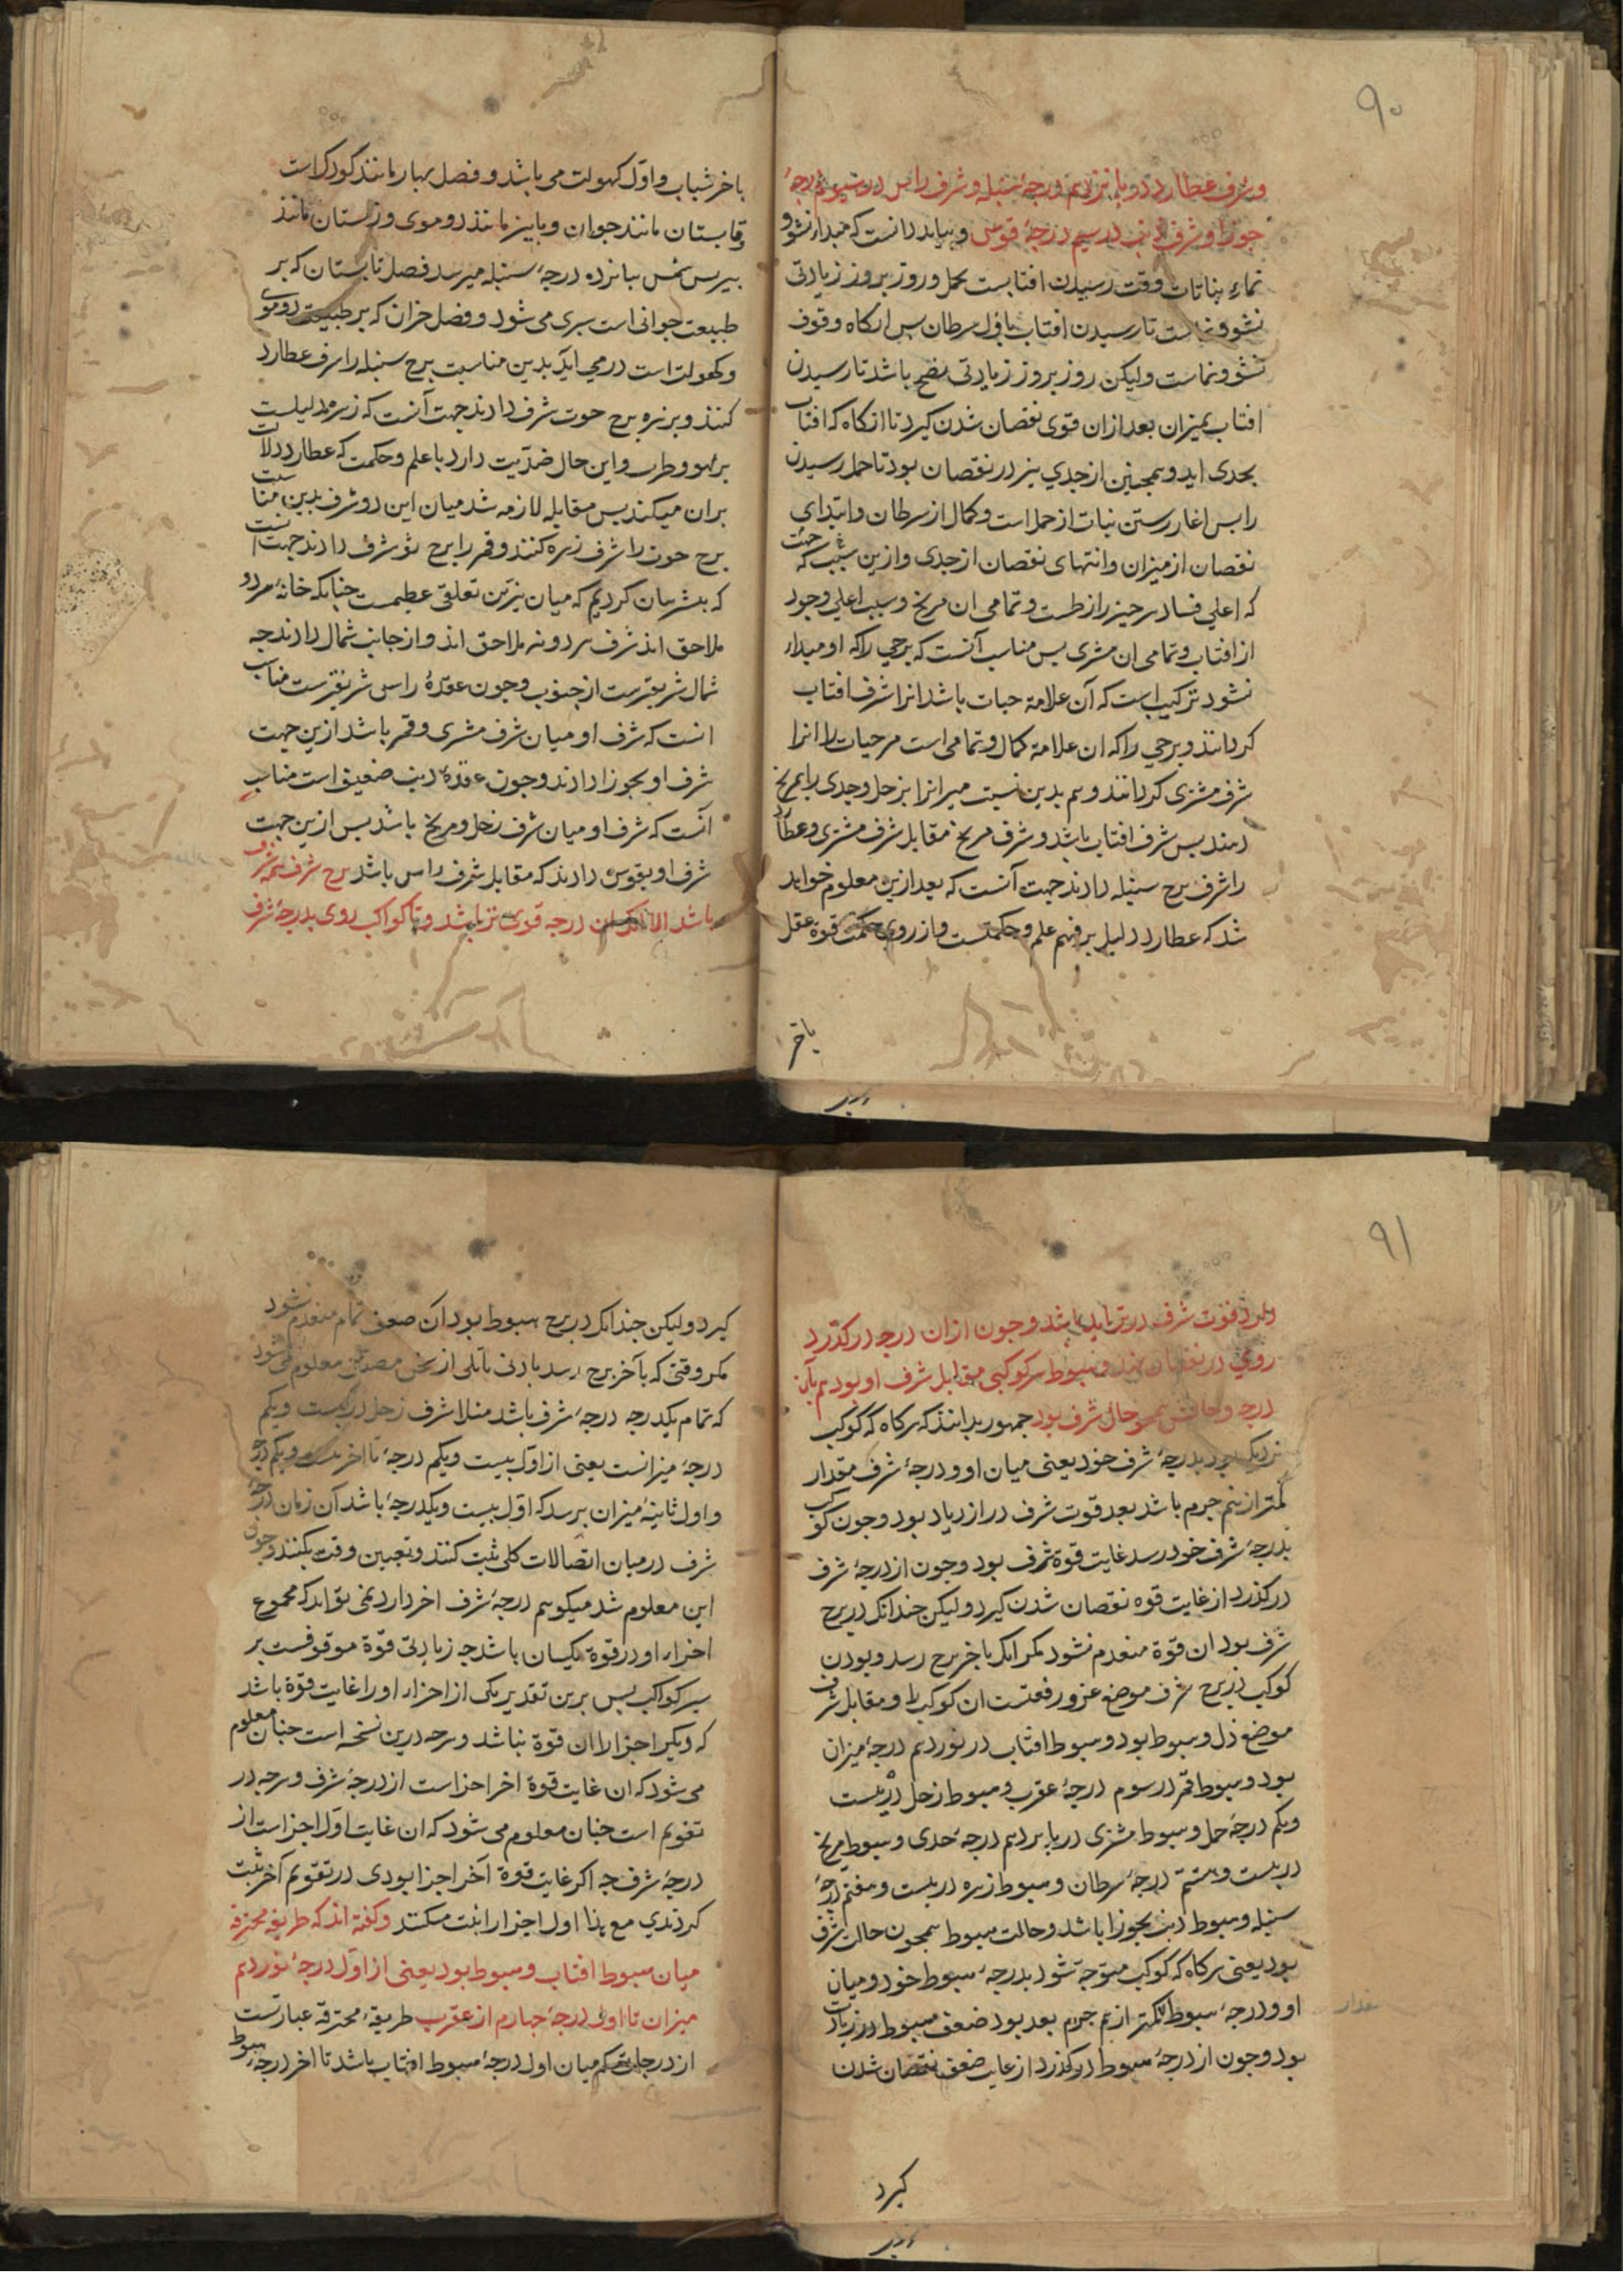 ۹۰
وشرف عطارد در پانزدهم درجهٔ سنبله وشرف راس در سیوم درجهٔ
جوزا وشرف ذنب در سیم درجهٔ قوس و بباید دانست که مبداء نشو و
نماء نباتات وقت رسیدن افتابست بحمل وروز بروز زیادتی
نشو ونماست تا رسیدن افتاب باول سرطان پس انکاه وقوف
نشو ونماست ولیکن روز بروز زیادتی نضج باشد تا رسیدن
افتاب بمیزان بعد ازان قوی نقصان شدن کیرد تا انکاه که افتاب
بجدی اید وهمچنین از جدی نیز در نقصان بود تا حمل رسیدن
را پس اغاز رستن نبات از حمل است وکمال از سرطان وابتدای
نقصان از میزان وانتهای نقصان از جدی وازین سبب که
که اعلی فساد بر حیز را زحلست وتمامی ان مریخ وسبب اعلی وجود
از افتاب وتمامی ان مشتری پس مناسب آنست که برجی راکه او مبداء
نشو وترکیب است که آن علامة حیات باشد انرا شرف افتاب
کردانند وبرجی راکه ان علامة کمال وتمامی است مر حیات را انرا
شرف مشتری کردانند وهم بدین نسبت میزانرا بزحل وجدی را بمریخ
دهند پس شرف افتاب باشد وشرف مریخ مقابل شرف مشتری وعطارد
را شرف برج سنبله دادند جهت آنست که بعد ازین معلوم خواهد
شد که عطارد دلیل بر فهم علم وحکمتست واز روی حکمت قوة عقل
باخر
باخر شباب واول کهولت می باشد وفصل بهار مانند کودک است
وتابستان مانند جوان وپاییز مانند دو موی وزمستان مانند
پیر پس شمس بپانزده درجهٔ سنبله میرسد فصل تابستان که بر
طبیعت جوانی است سپری می شود وفصل خزان که بر طبیعت دو موی
وکهولت است در می آید بدین مناسبت برج سنبله را شرف عطارد
کنند وبرزهره برج حوت شرف دادند جهت آنست که زهره دلیلست
بر لهو وطرب واین حال ضدیت دارد با علم وحکمت که عطارد دلالت
بران میکند پس مقابله لازمه شد میان این دو شرف بدین مناسبت
برج حوت را شرف زهره کنند وقمر را برج ثور شرف دادند جهت آنست
که پیشتر بیان کردیم که میان نیرین تعلقی عظیمست چنانکه خانهٔ هر دو
ملاحق اند شرف هر دو نیز ملاحق اند واز جانب شمال دادند چه
شمال شریفترست از جنوب وچون عقدهٔ راس شریفترست مناسب
انست که شرف او میان شرف مشتری وقمر باشد ازین جهت
شرف او بجوزا دادند وچون عقدهٔ ذنب ضعیف است مناسب
آنست که شرف او میان شرف زحل ومریخ باشد پس ازین جهت
شرف او بقوس دادند که مقابل شرف راس باشد برج شرف همه شرف
باشد الا انکه ان درجه قوی تر باشد وتا کواکب روی بدرجهٔ شرف
۹۱
دارد قوت شرف در تزاید باشد وچون ازان درجه درکذرد
روی در نقصان نهد وهبوط هر کوکبی مقابل شرف او بود هم بآن
درجه وحالش همچو حال شرف بود جمهور برانند که هرکاه که کوکب
نزدیک بود بدرجهٔ شرف خود یعنی میان او ودرجهٔ شرف مقدار
کمتر از نیم جرم باشد بعد قوت شرف در ازدیاد بود وچون کوکب
بدرجهٔ شرف خود رسد غایت قوة شرف بود وچون از درجهٔ شرف
درکذرد از غایت قوه نقصان شدن کیرد ولیکن چندانک در برج
شرف بود ان قوة منعدم نشود مکر انک باخر برج رسد وبودن
کوکب در برج شرف موضع عز ورفعتست ان کوکب را ومقابل شرف
موضع ذل وهبوط بود وهبوط افتاب در نوزدهم درجهٔ میزان
بود وهبوط قمر در سوم درجهٔ عقرب وهبوط زحل در بیست
ویکم درجهٔ حمل وهبوط مشتری در پانزدهم درجهٔ جدی وهبوط مریخ
در بیست وهشتم درجهٔ سرطان وهبوط زهره در بیست وهفتم درجهٔ
سنبله وهبوط ذنب بجوزا باشد وحالت هبوط همچون حالت شرف
بود یعنی هرکاه که کوکب متوجه شود بدرجهٔ هبوط خود ومیان
او ودرجهٔ هبوط کمتر از نیم جرم بعد بود ضعف هبوط در زیادت
بود وچون از درجهٔ هبوط درکذرد از غایت ضعف نقصان شدن
مقدار
کیرد
کیرد ولیکن چندانک در برج هبوط بود آن ضعف تمام منعدم نشود
مکر وقتی که بآخر برج رسد بادنی تاملی از سخن مصنف معلوم می شود
که تمام یکدرجه درجهٔ شرف باشد مثلا شرف زحل در بیست ویکم
درجهٔ میزانست یعنی از اول بیست ویکم درجهٔ تا اخر بیست ویکم درجه
واول ثانیهٔ میزان برسد که اول بیست ویکدرجهٔ باشد آن زمان درجهٔ
شرف در میان اتصالات کلی ثبت کنند وتعیین وقت بکنند وچون
این معلوم شد میکویم درجهٔ شرف اخر دارد نمی تواند که مجموع
اجزاء او در قوة یکسان باشد چه زیادتی قوة موقوفست بر
سیر کواکب پس برین تقدیر یکی از اجزاء او را غایت قوة باشد
که دیکر اجزا را ان قوة نباشد وهرچه درین نسخه است چنان معلوم
می شود که ان غایت قوة اخر اجزاست از درجهٔ شرف وهرچه در
تقویم است چنان معلوم می شود که ان غایت اول اجزاست از
درجهٔ شرف چه اکر غایت قوة آخر اجزا بودی در تقویم آخر ثبت
کردندی مع هذا اول اجزا را ثبت میکنند وکفته اند که طریقهٔ محترقه
میان هبوط افتاب وهبوط بود یعنی از اول درجهٔ نوزدهم
میزان تا اول درجهٔ چهارم از عقرب طریقهٔ محترقه عبارتست
از درجات که میان اول درجهٔ هبوط افتاب باشد تا اخر درجهٔ هبوط